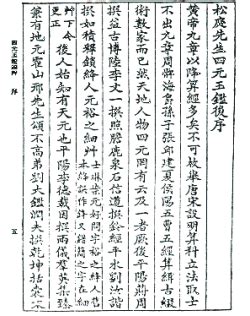 松庭先生四元玉鑑後序
黃帝九章以降算經多矣不可枚舉唐宋設明算科立法取士
不出九章周髀海島孫子張邱建夏侯陽五曹五經算緝古綴
術數家而已然天地人物四元罔有云及一者厥後平陽蔣周
撰益古博陸李文一撰照膽鹿泉石信道撰鈐經平水劉汝諧
撰如積釋鎖絳人元裕之細艸士琳案元好問字裕之絳人舊作許又錯簡之字在細
艸下今更正後人始知有天元也平陽李德載因撰兩儀羣英集臻
兼有地元霍山邢先生頌不高弟劉大鑑潤夫撰乾坤括囊末
四元玉鑑細艸 序 五